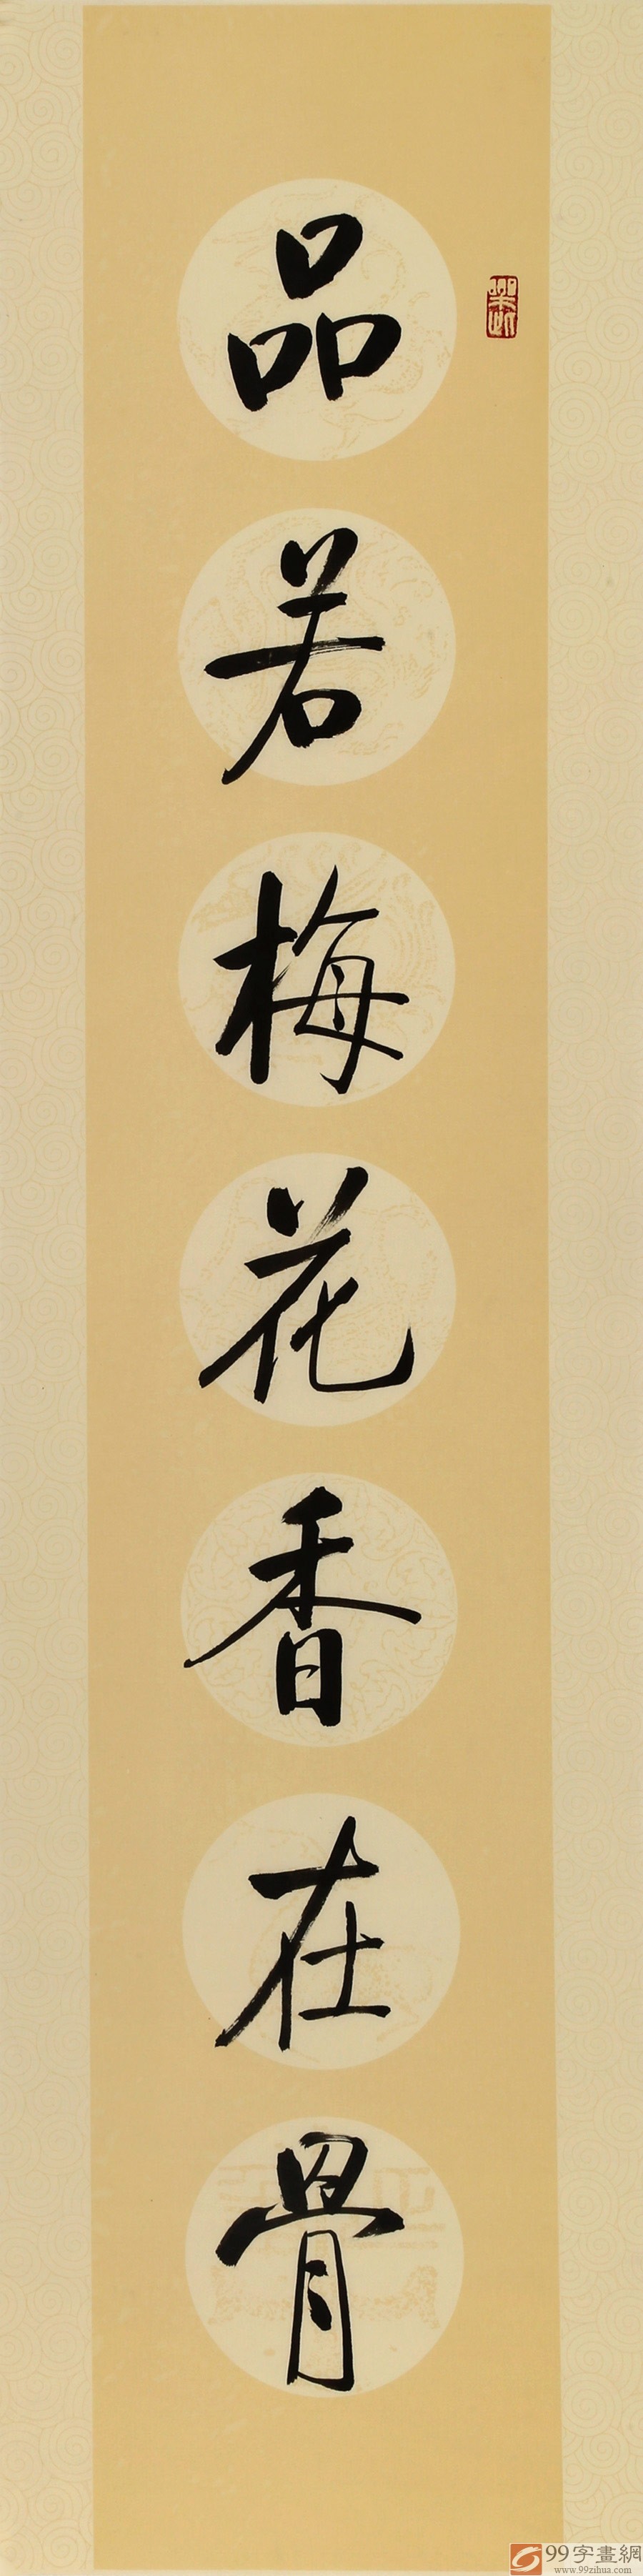 品若梅花香在骨
99字畫網
www.99zihua.com